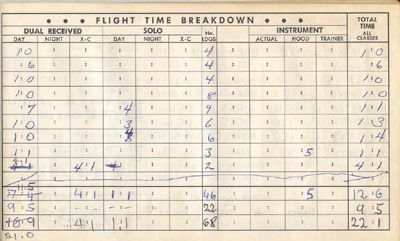 • • • FLIGHT TIME BREAKDOWN • • •
DUAL RECEIVED SOLO No. LDGS. INSTRUMENT TOTAL TIME ALL CLASSES
DAY NIGHT X-C DAY NIGHT X-C ACTUAL HOOD TRAINER
1:0 4 1:0
:6 4 :6
1:0 4 1:0
1:0 8 1:0
:7 :4 9 1:1
1:0 :3 6 1:3
1:0 6 1:4
1:1 3 :5 1:1
4:1 2 4:1
11:5
4:1 1:1 46 :5 12:6
9:5 -:- -:- 22 9:5
4:1 1:1 68 22:1
21:0